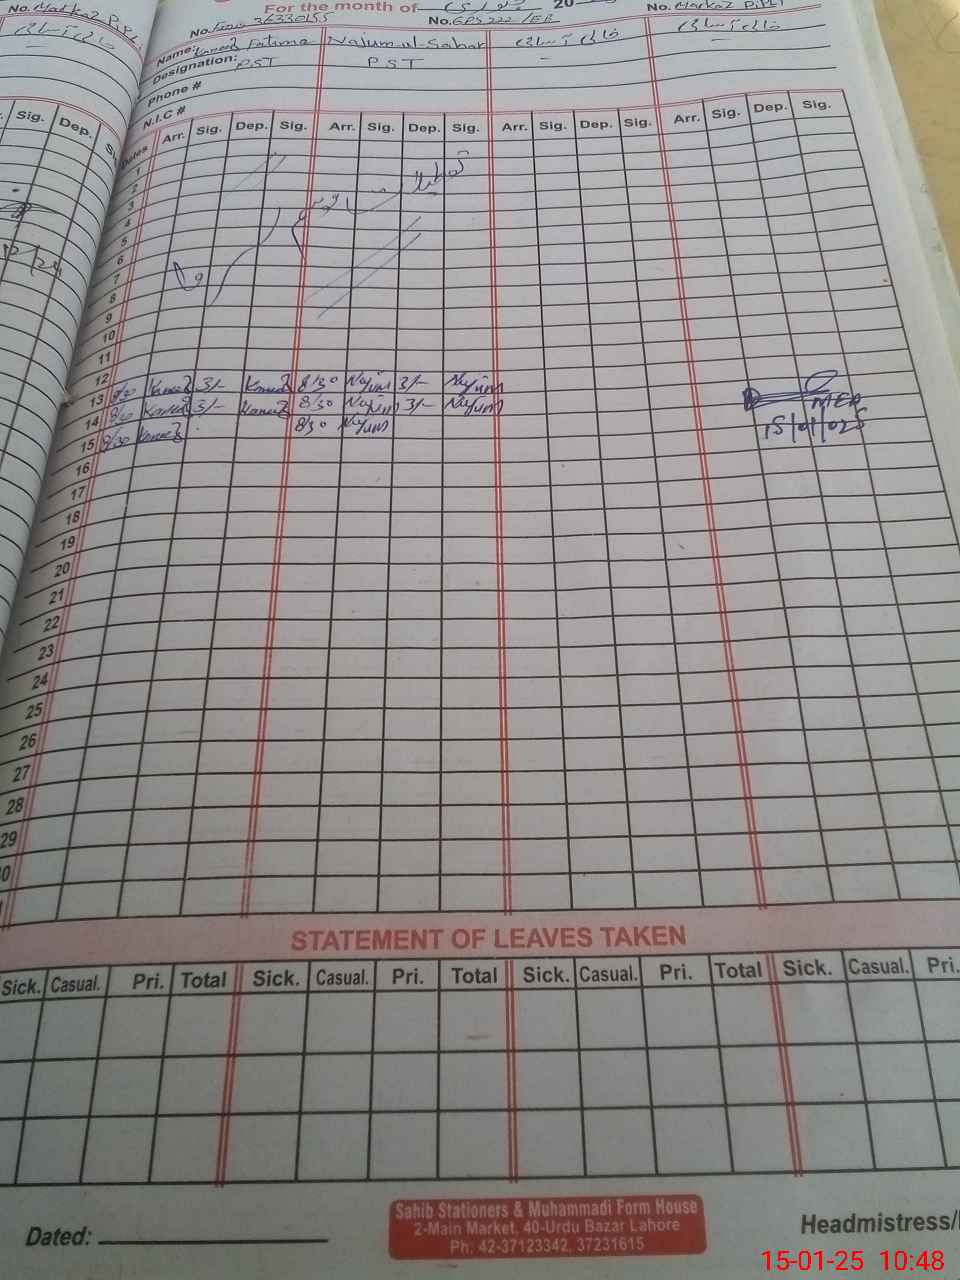 For the month of جنوری 20
No. Markaz Pipli
No. Fem 36330155 No. GPS 222/EB No. Markaz Pipli
Name: Kaneez Fatima Najum-ul-Sahar خالی آسامی خالی آسامی
Designation: PST PST - -
Phone #
N.I.C #
Sig. Dep.
Dates Arr. Sig. Dep. Sig. Arr. Sig. Dep. Sig. Arr. Sig. Dep. Sig. Arr. Sig. Dep. Sig.
1
2
3
4
5
6
7
8
9
10
11
12
13 8/30 Kaneez 3/- Kaneez 8/30 Najum 3/- Najum
14 8/30 Kaneez 3/- Kaneez 8/30 Najum 3/- Najum
15 8/30 Kaneez 8/30 Najum
15/01/025
16
17
18
19
20
21
22
23
24
25
26
27
28
29
STATEMENT OF LEAVES TAKEN
Sick. Casual. Pri. Total Sick. Casual. Pri. Total Sick. Casual. Pri. Total Sick. Casual. Pri.
Sahib Stationers & Muhammadi Form House
2-Main Market, 40-Urdu Bazar Lahore
Ph: 42-37123342, 37231615
Dated: Headmistress/
15-01-25 10:48